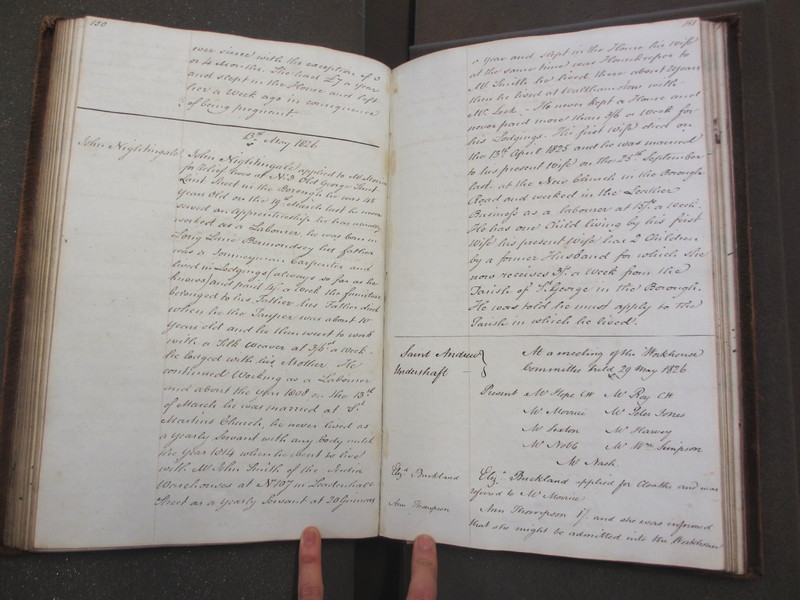 150
ever since with the exception of 3
or 4 Months. She had £7 a year
and slept in the House and left
her a Week ago in consequence
of being pregnant
13th May 1826
John Nightingale
John Nightingale applied to Mr Morrice
for relief lives at No 3 Old George Street
Lant Street in the Borough he was 48
Years Old on the 19th March last he never
served an Apprenticeship he has mainly
worked as a Labourer he was born in
Long Lane Bermondsey his father
was a Journeyman Carpenter and
lived in Lodgings (always so far as he
knows) and paid 4/. a week the furniture
belonged to his Father his Father died
when he the Pauper was about 10
years old and he then went to work
with a Silk Weaver at 3/6d a week
he lodged with his Mother. He
continued Working as a Labourer
and about the year 1808 on the 13th
of March he was married at St
Martins Church, he never lived as
a yearly Servant with any body until
the Year 1814 when he went to live
with Mr John Smith of the India
Warehouses at No 107 in Leadenhall
Street as a yearly Servant at 20 Guineas
151
a year and slept in the House his Wife
at the same time was Housekeeper to
Mr Smith he lived there about 2 Years
then he lived at Walthamstow with
Mr Lock. He never kept a House and
never paid more than 3/6 a Week for
his Lodgings. His first Wife died on
the 13th April 1825 and he was married
to his present Wife on the 25th September
last at the New Church in the Borough
Road and worked in the Leather
Business as a labourer at 15/. a Week.
He has one Child living by his first
Wife his present Wife has 2 Children
by a former Husband for which she
now receives 3/. a Week from the
Parish of St George in the Borough.
He was told he must apply to the
Parish in which he lived.
Saint Andrew
Undershaft
At a meeting of the Workhouse
Committee held 29 May 1826
Present Mr Hope CW Mr Ray CW
Mr Morrice Mr Peter Jones
Mr Sexton Mr Harvey
Mr Nobb Mr Wm Simpson
Mr Nash
Eliz. Buckland
Eliz. Buckland applied for Cloaths and was
referred to Mr Morrice
Ann Thompson
Ann Thompson 1/. and she was informed
that she might be admitted into the Workhouse